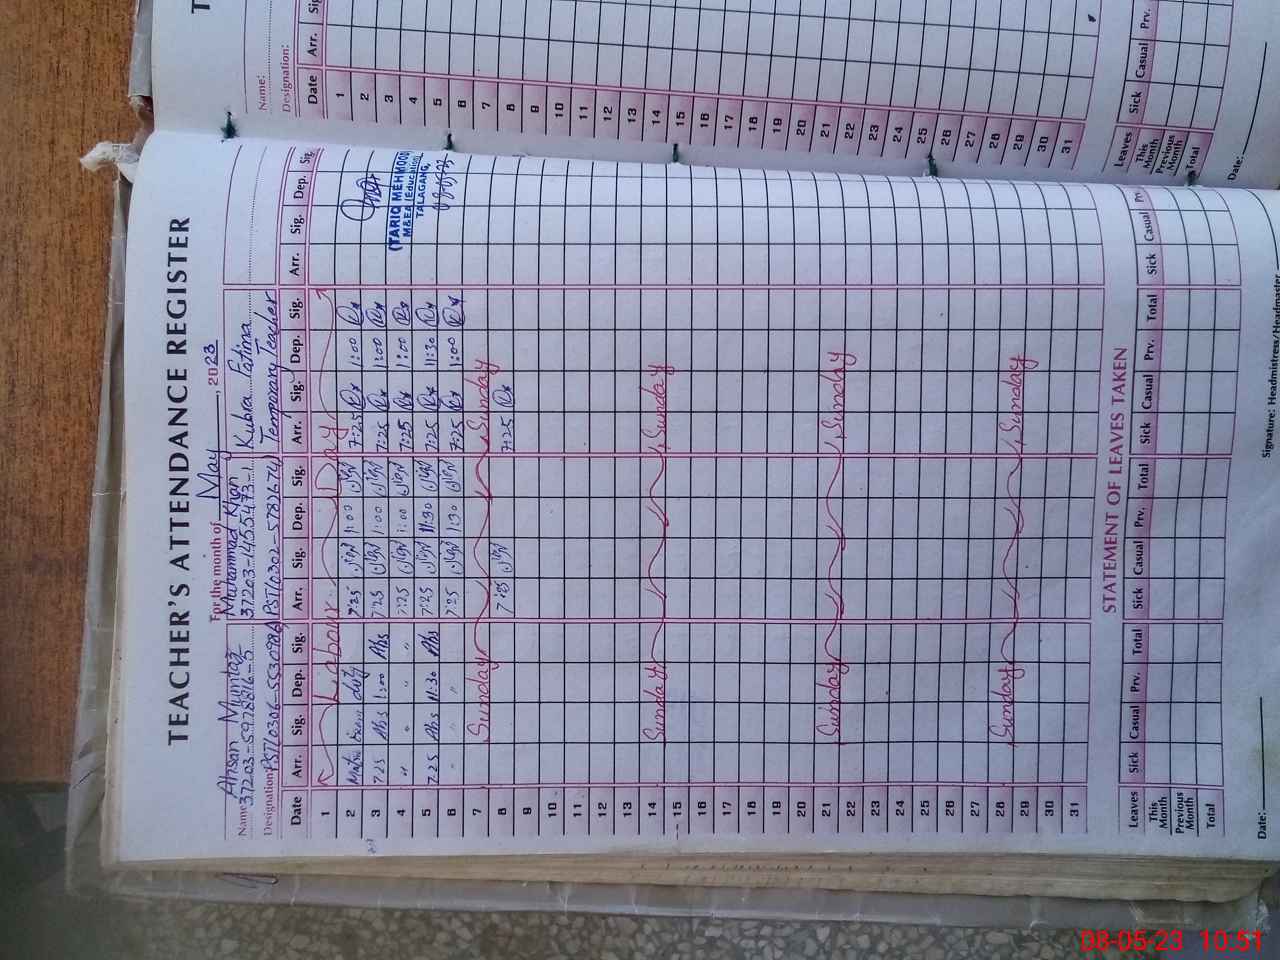 TEACHER'S ATTENDANCE REGISTER
For the month of May, 2023
Name: Ahsan Mumtaz Muhammad Khan Kubra Fatima
37203-5978816-5 37203-1455473-1
Designation: PST(0306-5530984) PST(0302-5782674) Temporary Teacher
Date Arr. Sig. Dep. Sig. Arr. Sig. Dep. Sig. Arr. Sig. Dep. Sig. Arr. Sig. Dep. Sig.
1 Labour Day
2 duty 7:25 1:00 7:25 1:00
3 7:25 Abs 1:00 Abs 7:25 1:00 7:25 1:00
4 " " " " 7:25 1:00 7:25 1:00
5 7.25 Abs 11:30 Abs 7:25 11:30 7:25 11:30
6 " " " 7:25 1:30 7:25 1:00
7 Sunday Sunday
8 7:25 7:25
9
10
11
12
13
14 Sunday Sunday
15
16
17
18
19
20
21 Sunday Sunday
22
23
24
25
26
27
28 Sunday Sunday
29
30
31
(TARIQ MEHMOOD)
M&EA (Education)
TALAGANG.
STATEMENT OF LEAVES TAKEN
Leaves Sick Casual Prv. Total Sick Casual Prv. Total Sick Casual Prv. Total Sick Casual Prv.
This Month
Previous Month
Total
Date: Signature: Headmistress/Headmaster
Name:
Designation:
Date Arr. Sig.
1
2
3
4
5
6
7
8
9
10
11
12
13
14
15
16
17
18
19
20
21
22
23
24
25
26
27
28
29
30
31
Leaves Sick Casual Prv.
This Month
Previous Month
Total
Date:
08-05-23 10:51